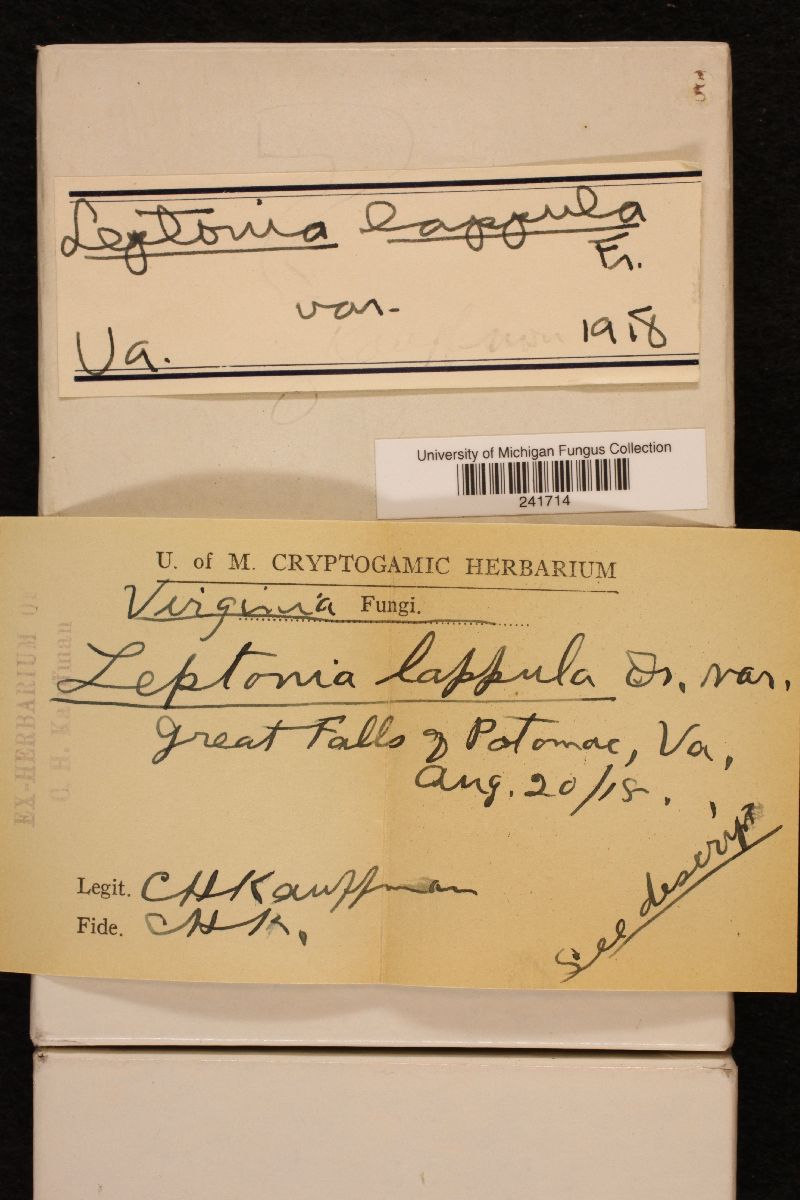 Leptonia lappula
Fr.
var.
Va. 1918
University of Michigan Fungus Collection
241714
U. of M. CRYPTOGAMIC HERBARIUM
Virginia Fungi.
Leptonia lappula Fr. var.
Great Falls of Potomac, Va,
Aug. 20/18.
See descript
EX-HERBARIUM OF
C. H. Kauffman
Legit. CHKauffman
Fide. CHK.